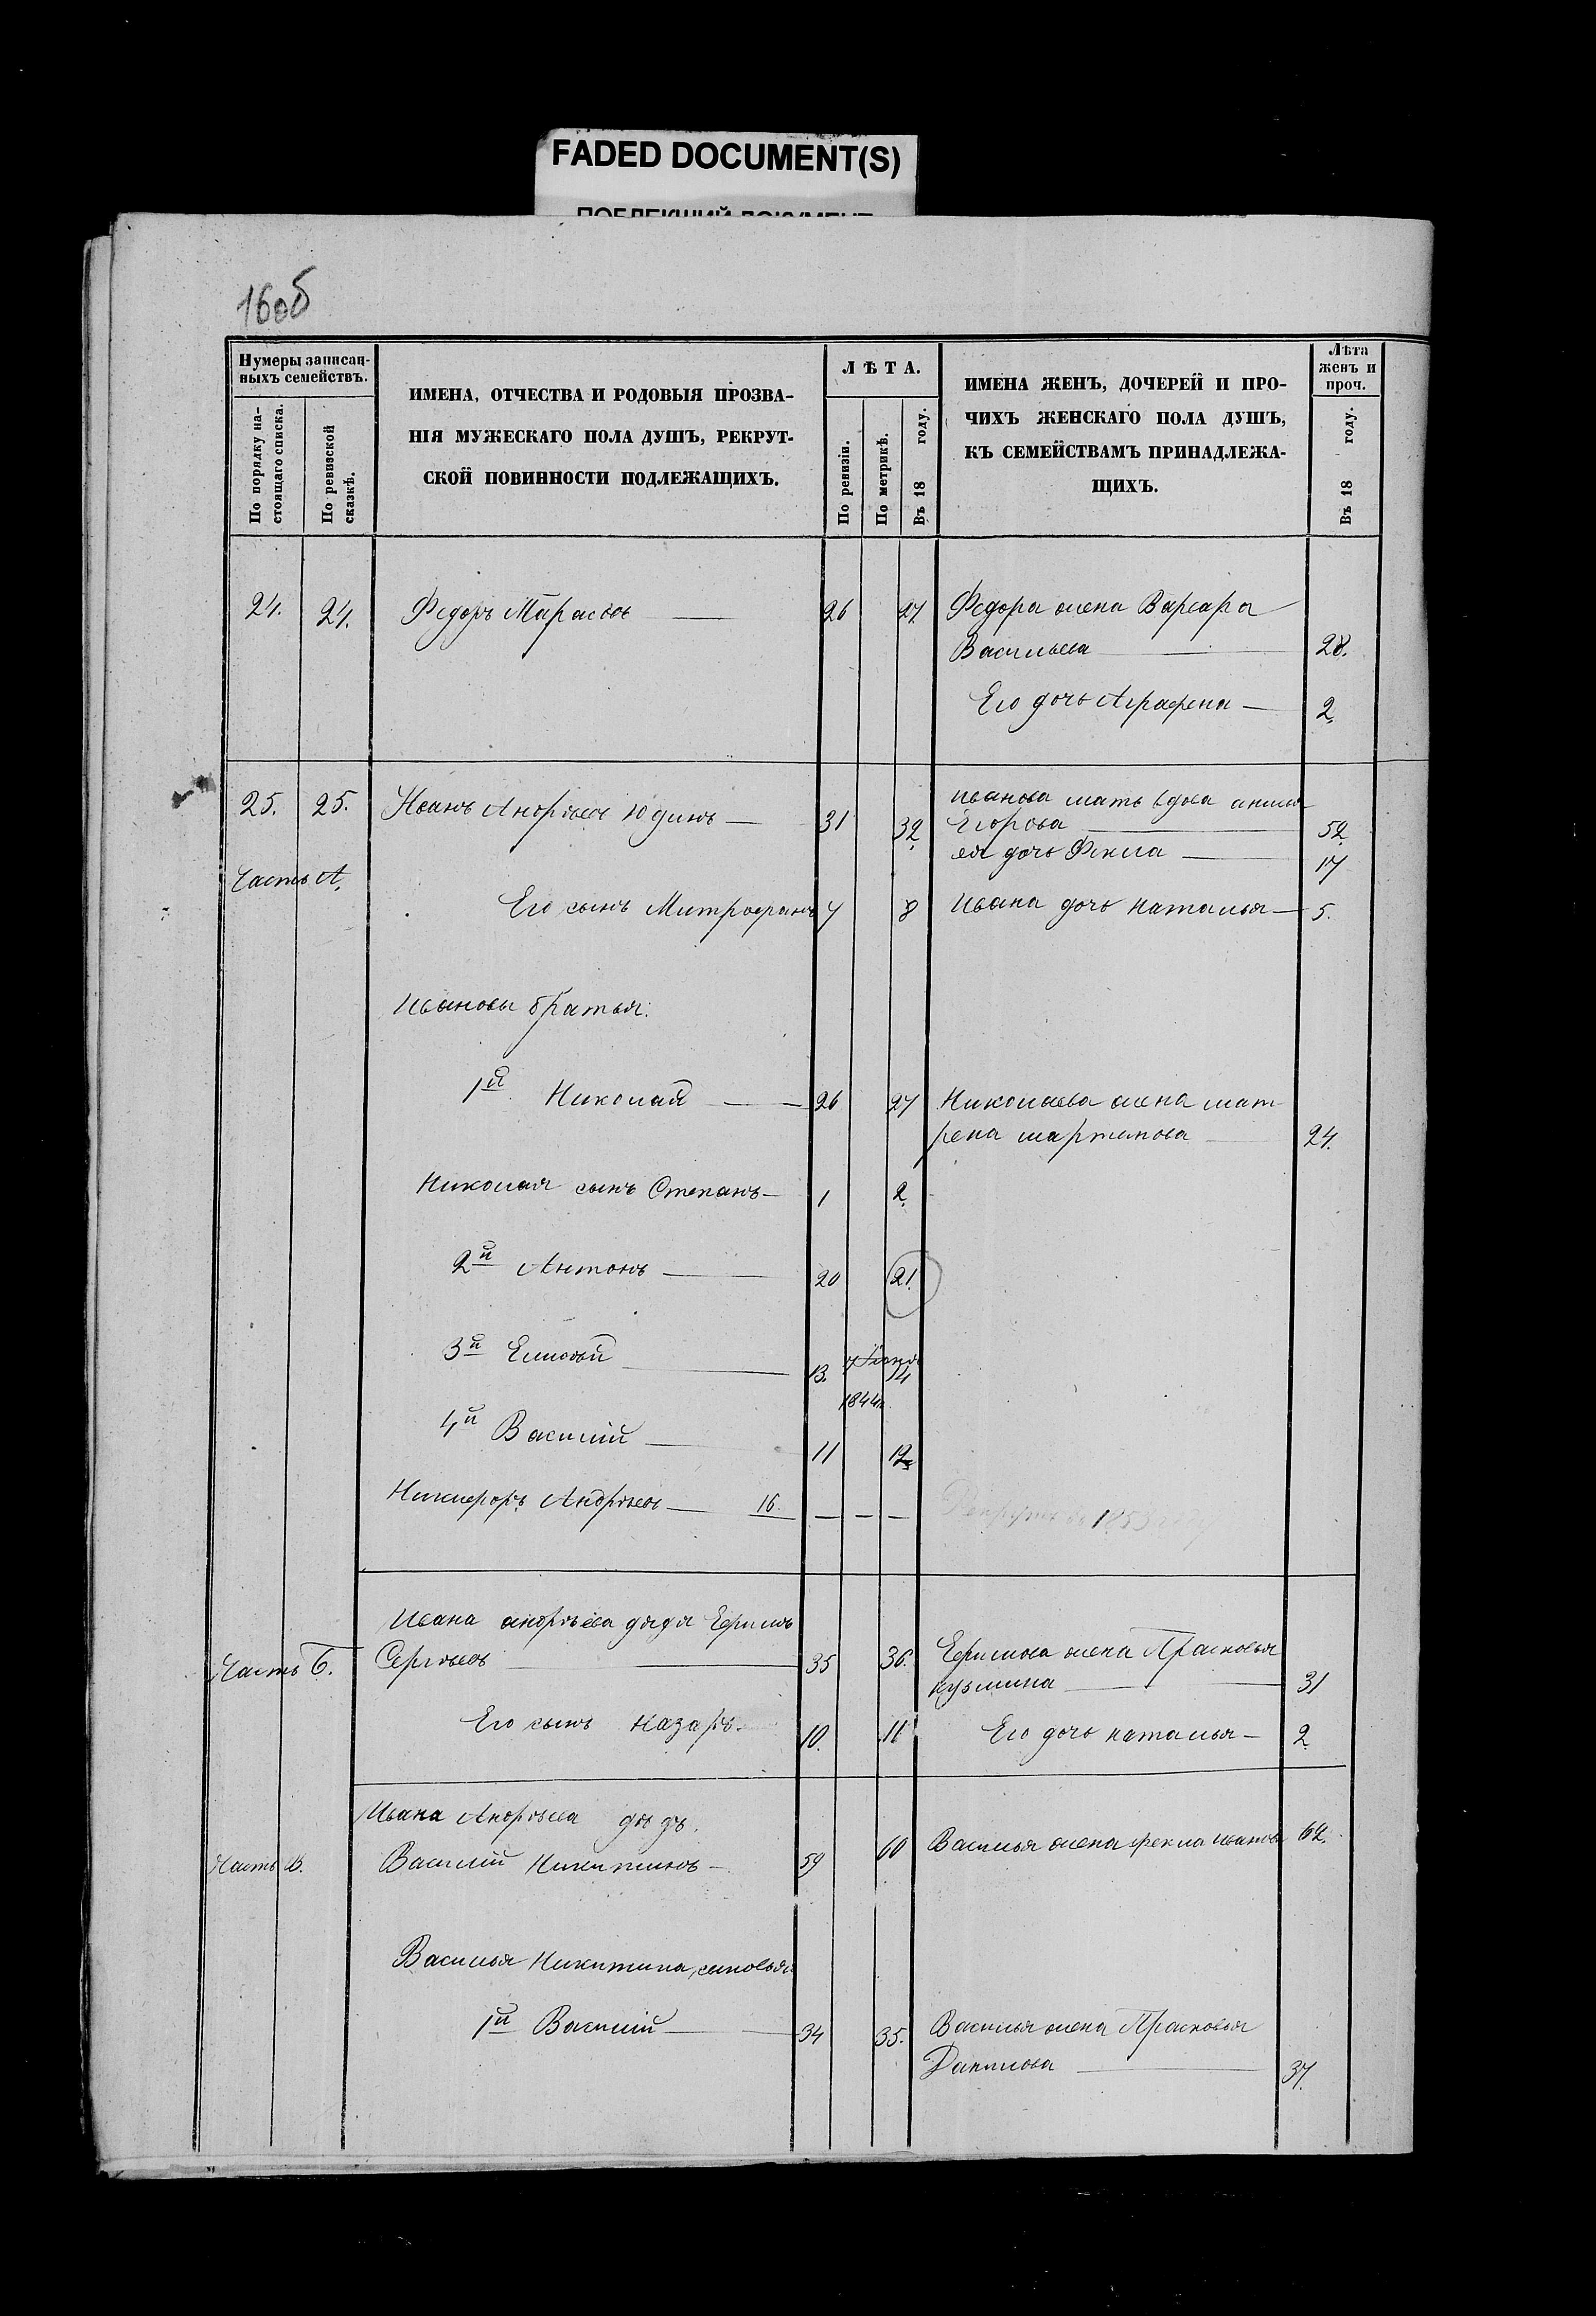 FADED DOCUMENT(S)
ПОБЛЕКШИЙ ДОКУМЕНТ
16об
Нумеры записан-
ныхъ семействъ.
По порядку на-
стоящаго списка.
По ревизской
сказкѣ.
ИМЕНА, ОТЧЕСТВА И РОДОВЫЯ ПРОЗВА-
НІЯ МУЖЕСКАГО ПОЛА ДУШЪ, РЕКРУТ-
СКОЙ ПОВИННОСТИ ПОДЛЕЖАЩИХЪ.
ЛѢТА.
По ревизіи.
По метрикѣ.
Въ 18 году.
ИМЕНА ЖЕНЪ, ДОЧЕРЕЙ И ПРО-
ЧИХЪ ЖЕНСКАГО ПОЛА ДУШЪ,
КЪ СЕМЕЙСТВАМЪ ПРИНАДЛЕЖА-
ЩИХЪ.
Лѣта
женъ и
проч.
Въ 18 году.
24. 24. Федоръ Тарасовъ — 26 27 Федора жена Варвара
Васильева — 28.
Его дочь Аграфена — 2.
25. 25. Иванъ Андрѣевъ Юдинъ — 31 32 Иванова мать вдова
Егорова — 52
ея дочь Фекла — 17
Часть А.
Его сынъ Митрофанъ 7 8 Ивана дочь наталья — 5.
Ивановы братья:
1й Николай — 26 27 Николаева жена мат-
рена мартинова — 24.
Николая сынъ Степанъ — 1 2
2й Антонъ — 20 21.
3й Елисѣй — 13. 14
1844г.
4й Василій — 11 12
Никифоръ Андрѣевъ — 16. — — — Рекрутъ въ 1853 году
Ивана андрѣева дядя Ефимъ
Часть Б. Сергѣевъ — 35 36. Ефимова жена Прасковья
кузмина — 31
Его сынъ назаръ — 10. 11 Его дочь наталья — 2
Ивана Андрѣева дѣдъ.
Часть В. Василій Никитинъ — 59 60 Василья жена фекла иванова 62.
Василья Никитина сыновья:
1й Василій — 34 35. Василья жена Прасковья
Данилова — 37.